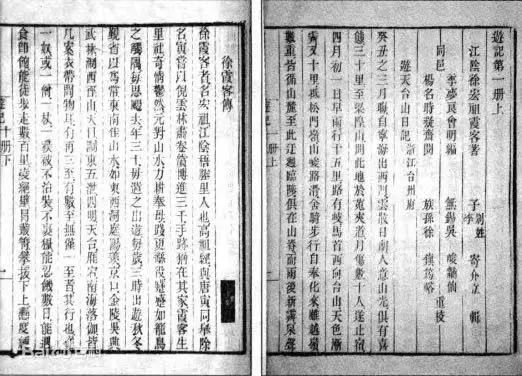 遊記第一册上
江陰徐宏祖霞客著
子李 寄介立 輯
同邑
李夢良會明編
無錫吳 峻
楊名時凝齋閱
族孫徐 鎮筠峪 重校
遊天台山日記 浙江台州府
癸丑之三月晦自寧海出西門雲散日朗人意山光俱有喜
態三十里至梁隍山聞此地於菟夾道月傷數十人遂止宿
四月初一日早雨行十五里路有岐馬首西向台山天色漸
霽又十里抵松門嶺山峻路滑舍騎步行自奉化來雖越嶺
數重皆循山麓至此迂迴臨陟俱在山脊而雨後新霽泉聲
遊記 一册上
徐霞客傳
徐霞客者名宏祖江陰梧塍里人也高祖經與唐寅同舉除
名寅嘗以倪雲林畫卷償博進三千手跡猶在其家霞客生
里社奇情鬱然元對山水力耕奉母踐更繇役蹙蹙如籠鳥
之觸隅每思颺去年三十母遣之出遊每歲三時出遊秋冬
覲省以爲常東南佳山水如東西洞庭陽羨京口金陵吳興
武林浙西徑山天目浙東五泄四明天台雁宕南海落伽皆
几案衣帶閒物耳有再三至有數至無僅一至者其行也從
一奴或一僧一杖一襆被不治裝不裹糧能忍饑數日能遇
食即飽能徒步走數百里凌絕壁冒叢箐攀援下上懸度綆
遊記 十册下